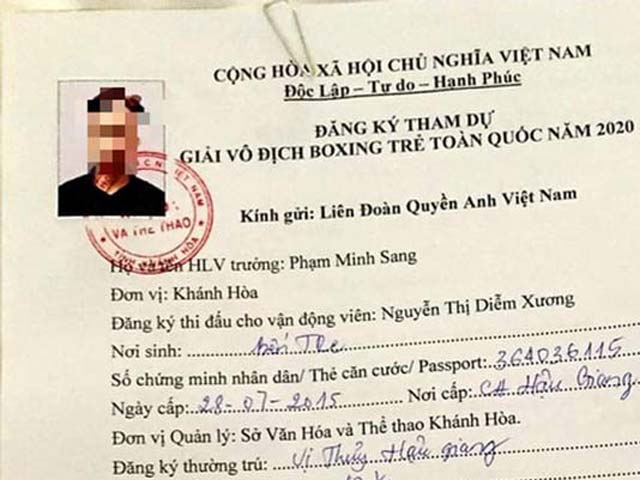 CỘNG HÒA XÃ HỘI CHỦ NGHĨA VIỆT NAM
Độc Lập – Tự do – Hạnh Phúc
ĐĂNG KÝ THAM DỰ
GIẢI VÔ ĐỊCH BOXING TRẺ TOÀN QUỐC NĂM 2020
Kính gửi: Liên Đoàn Quyền Anh Việt Nam
VÀ THỂ THAO
TỈNH KHÁNH HÒA
Họ và tên HLV trưởng: Phạm Minh Sang
Đơn vị: Khánh Hòa
Đăng ký thi đấu cho vận động viên: Nguyễn Thị Diễm Xương
Nơi sinh: Bến Tre
Số chứng minh nhân dân/ Thẻ căn cước/ Passport: 364036115
Ngày cấp: 28-07-2015 Nơi cấp: CA Hậu Giang
Đơn vị Quản lý: Sở Văn Hóa và Thể thao Khánh Hòa.
Đăng ký thường trú: Vị Thủy Hậu Giang